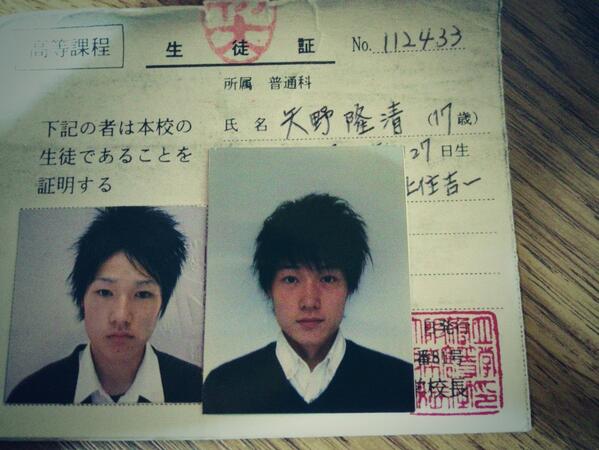 高等課程
生徒証
No. 112433
所属 普通科
氏名 矢野隆清 (17歳)
27日生
下記の者は本校の
生徒であることを
証明する
住吉一
校長